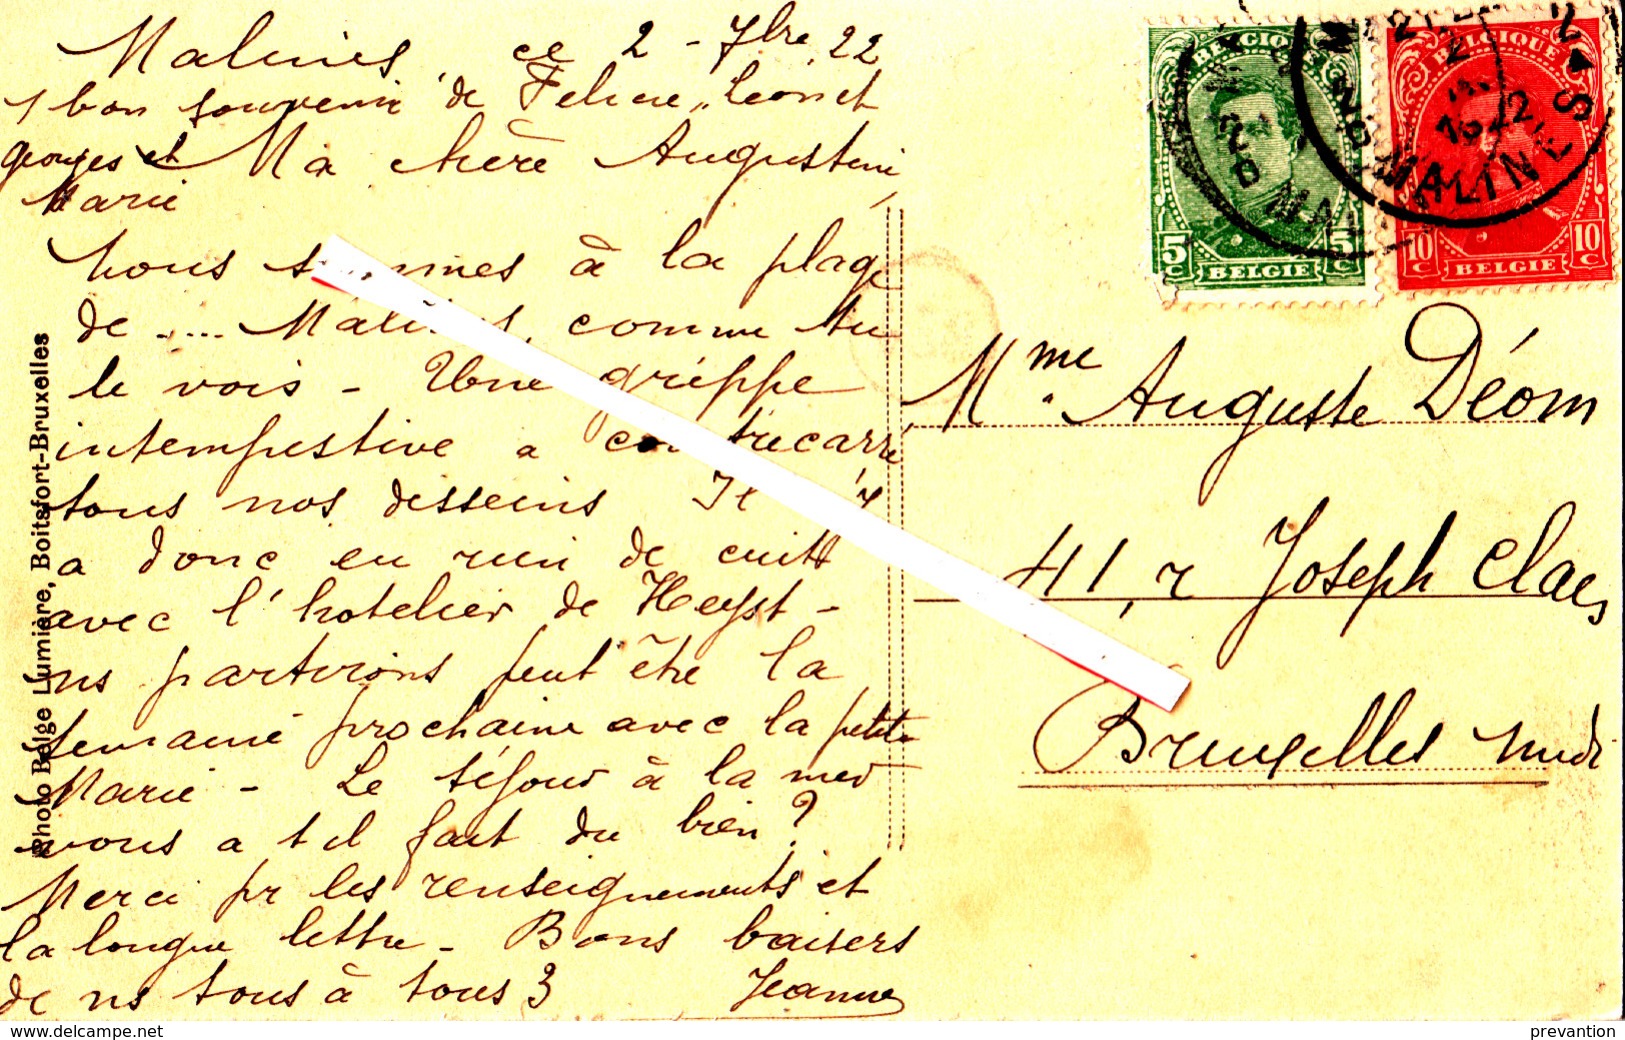 Malines, ce 2 - 7bre 22
1 bon souvenir de Félicie, Léon et
Georges et
Marie
Ma chère Augustine,
Nous sommes à la plage
de .... Malines, comme tu
le vois - Une grippe
intempestive a contrecarré
tous nos desseins Il y
a donc eu rien de cuit
avec l'hotelier de Heyst -
ns partirons peut être la
semaine prochaine avec la petite
Marie - Le séjour à la mer
vous a t il fait du bien?
Merci pr les renseignements et
la longue lettre - Bons baisers
de ns tous à tous 3
Jeanne
Photo Belge Lumière, Boitsfort-Bruxelles
BELGIQUE
5 C BELGIE 5 C
BELGIQUE
10 C BELGIE 10 C
MALINES
1922
Mme Auguste Déom
41, r Joseph Claes
Bruxelles midi
www.delcampe.net
prevantion